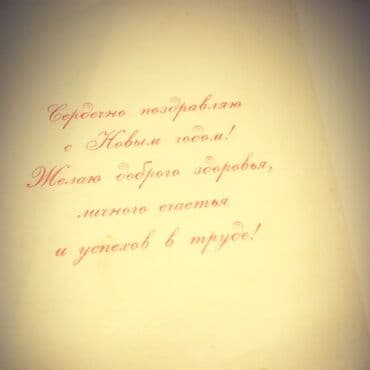 Сердечно поздравляю
с Новым годом!
Желаю доброго здоровья,
личного счастья
и успехов в труде!